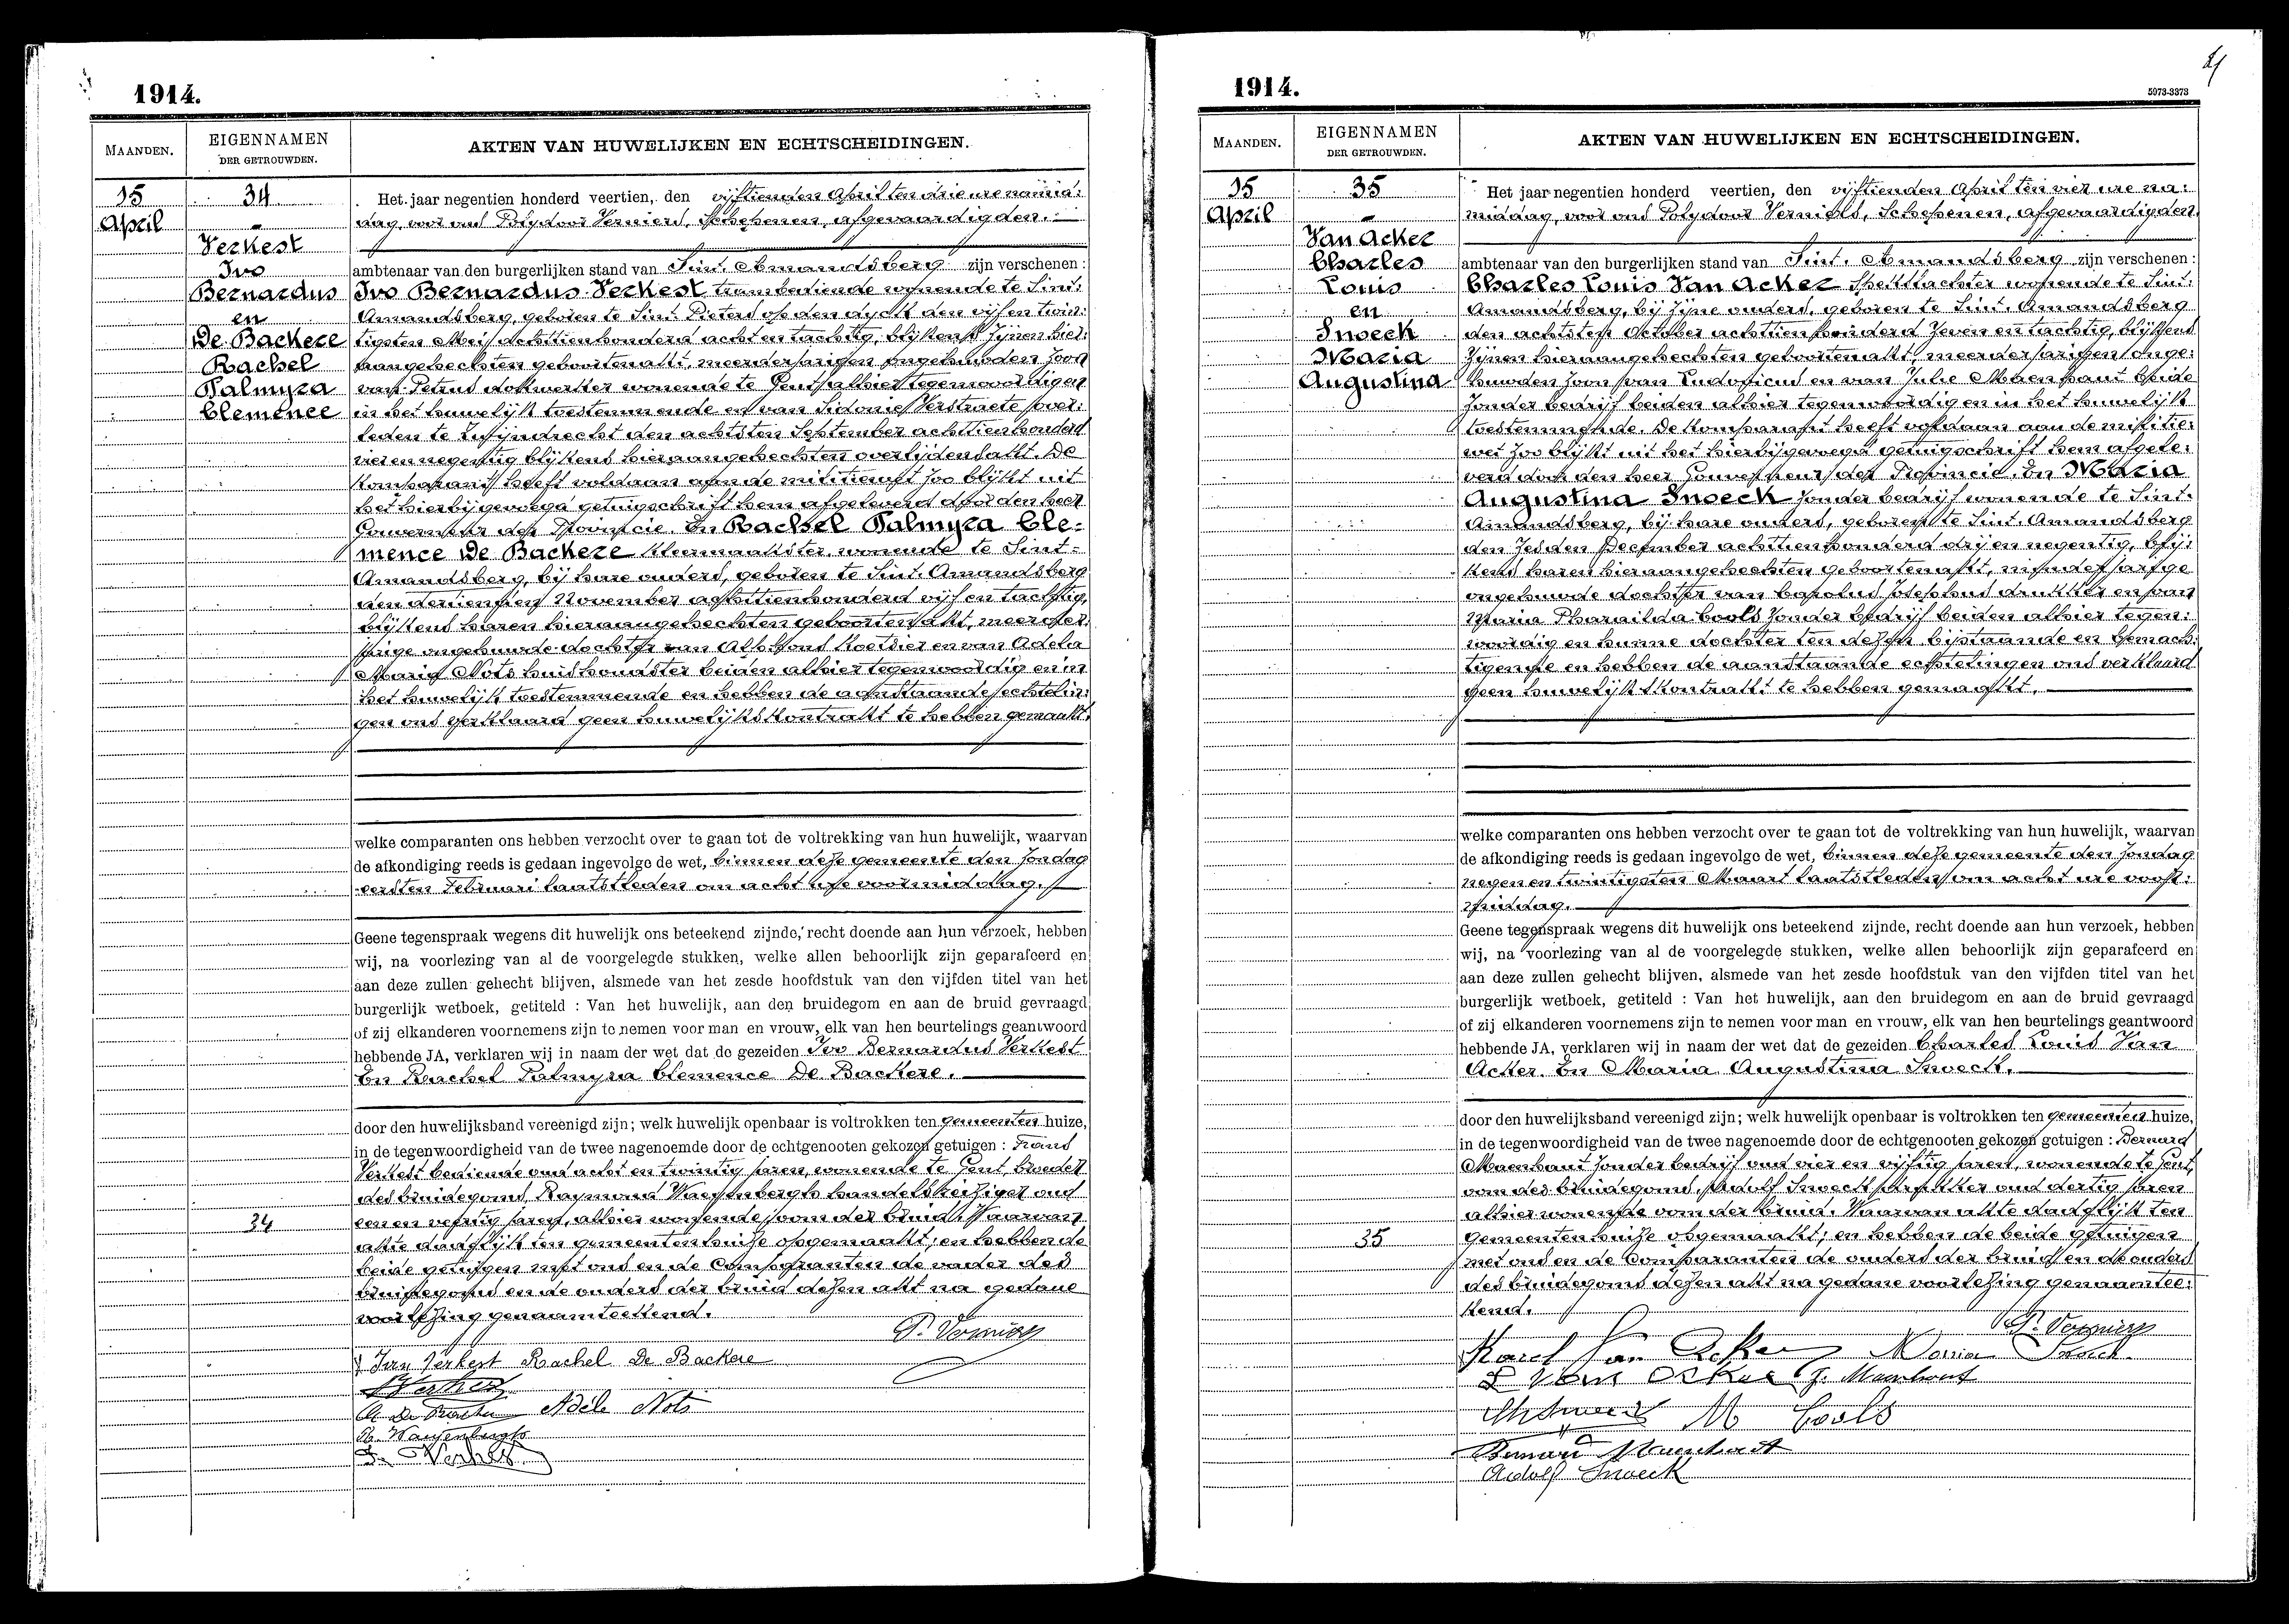 1914.
MAANDEN.
EIGENNAMEN
DER GETROUWDEN.
AKTEN VAN HUWELIJKEN EN ECHTSCHEIDINGEN.
15
April
34
Verkest
Ivo
Bernardus
en
De Backere
Rachel
Palmyra
Clemence
Het jaar negentien honderd veertien, den vijftienden April ten drie ure namid:
dag, voor ons Polydoor Verniers, Schepenen, afgevaardigden
ambtenaar van den burgerlijken stand van Sint. Amandsberg zijn verschenen:
Ivo Bernardus Verkest, trambediende wonende te Sint:
Amandsberg, geboren te Sint Pieters op den aycht den vijf en twin:
tigsten Mei achttienhonderd acht en tachtig, blijkens zijnen hier:
aangehechten geboortenakt, meerderjarigen ongehuwden zoon
van Petrus dokwerker wonende te Gent alhier tegenwoordig en
in het huwelijk toestemmende en van Sidonie Verstraete over:
leden te Zwijndrecht den achtsten September achttienhonderd
vier en negentig blijkens hieraangehechten overlijdensakt. De
Komparant heeft voldaan aan de militiewet zoo blijkt uit
het hierbijgevoegd getuigschrift hem afgeleverd door den heer
Gouverneur der Provincie. En Rachel Palmyra Cle-
mence De Backere kleermaakster, wonende te Sint-
Amandsberg, bij hare ouders, geboren te Sint. Amandsberg
den dertienden November achttienhonderd vijf en tachtig,
blijkens haren hieraangehechten geboortenakt, meerder:
jarige ongehuwde dochter van Alphons Koetsier en van Adela
Maria Nots huishoudster beiden alhier tegenwoordig en in
het huwelijk toestemmende en hebben de aanstaande echtelin:
gen ons verklaard geen huwelijkskontrakt te hebben gemaakt.
welke comparanten ons hebben verzocht over te gaan tot de voltrekking van hun huwelijk, waarvan
de afkondiging reeds is gedaan ingevolge de wet, binnen deze gemeente den Zondag
eersten Februari laatstleden om acht ure voormiddag.
Geene tegenspraak wegens dit huwelijk ons beteekend zijnde, recht doende aan hun verzoek, hebben
wij, na voorlezing van al de voorgelegde stukken, welke allen behoorlijk zijn geparafeerd en
aan deze zullen gehecht blijven, alsmede van het zesde hoofdstuk van den vijfden titel van het
burgerlijk wetboek, getiteld : Van het huwelijk, aan den bruidegom en aan de bruid gevraagd
of zij elkanderen voornemens zijn te nemen voor man en vrouw, elk van hen beurtelings geantwoord
hebbende JA, verklaren wij in naam der wet dat de gezeiden Ivo Bernardus Verkest
En Rachel Palmyra Clemence De Backere.
door den huwelijksband vereenigd zijn; welk huwelijk openbaar is voltrokken ten gemeenten huize,
in de tegenwoordigheid van de twee nagenoemde door de echtgenooten gekozen getuigen : Frans
Verkest bediende oud acht en twintig jaren, wonende te Gent, broeder
des bruidegoms, Raymond Waeyenbergh handelsreiziger oud
een en veertig jaren, alhier wonende oom der bruid. Waarvan
akte dadelijk ten gemeentenhuize opgemaakt; en hebben de
beide getuigen met ons en de Comparanten de vader des
bruidegoms en de ouders der bruid dezen akt na gedane
voorlezing genaamteekend.
34
P. Verniers
Ivan Verkest Rachel De Backere
Verkest
A De Backere Adèle Nots
R. Waeyenbergh
F. Verkest
1914.
5973-3373
MAANDEN.
EIGENNAMEN
DER GETROUWDEN.
AKTEN VAN HUWELIJKEN EN ECHTSCHEIDINGEN.
15
April
35
Van Acker
Charles
Louis
en
Snoeck
Maria
Augustina
Het jaar negentien honderd veertien, den vijftienden April ten vier ure na:
middag, voor ons Polydoor Verniers, Schepenen, afgevaardigden
ambtenaar van den burgerlijken stand van Sint. Amandsberg zijn verschenen:
Charles Louis Van Acker Spekslachter wonende te Sint:
Amandsberg, bij zijne ouders, geboren te Sint. Amandsberg
den achtsten October achttienhonderd zeven en tachtig, blijkens
zijnen hieraangehechten geboortenakt, meerderjarigen onge:
huwden zoon van Ludovicus en van Julie Maenhaut beide
zonder bedrijf beiden alhier tegenwoordig en in het huwelijk
toestemmende. De Komparant heeft voldaan aan de militie:
wet zoo blijkt uit het hierbijgevoegd getuigschrift hem afgele:
verd door den heer Gouverneur der Provincie. En Maria
Augustina Snoeck zonder bedrijf wonende te Sint.
Amandsberg, bij hare ouders, geboren te Sint. Amandsberg
den zesden December achttienhonderd drij en negentig, blij:
kens haren hieraangehechten geboortenakt, minderjarige
ongehuwde dochter van Carolus Josephus drukker en van
Maria Pharaïlda Cools zonder bedrijf beiden alhier tegen:
woordig en hunne dochter ten dezen bijstaande en bemach:
tigende en hebben de aanstaande echtelingen ons verklaard
geen huwelijkskontrakt te hebben gemaakt.
welke comparanten ons hebben verzocht over te gaan tot de voltrekking van hun huwelijk, waarvan
de afkondiging reeds is gedaan ingevolge de wet, binnen deze gemeente den Zondag
negen en twintigsten Maart laatstleden om acht ure voor:
middag.
Geene tegenspraak wegens dit huwelijk ons beteekend zijnde, recht doende aan hun verzoek, hebben
wij, na voorlezing van al de voorgelegde stukken, welke allen behoorlijk zijn geparafeerd en
aan deze zullen gehecht blijven, alsmede van het zesde hoofdstuk van den vijfden titel van het
burgerlijk wetboek, getiteld : Van het huwelijk, aan den bruidegom en aan de bruid gevraagd
of zij elkanderen voornemens zijn te nemen voor man en vrouw, elk van hen beurtelings geantwoord
hebbende JA, verklaren wij in naam der wet dat de gezeiden Charles Louis Van
Acker. En Maria Augustina Snoeck.
door den huwelijksband vereenigd zijn; welk huwelijk openbaar is voltrokken ten gemeenten huize,
in de tegenwoordigheid van de twee nagenoemde door de echtgenooten gekozen getuigen : Bernard
Maenhaut zonder bedrijf oud vier en vijftig jaren, wonende te Gent,
oom des bruidegoms, Adolf Snoeck oud dertig jaren
alhier wonende oom der bruid. Waarvan akte dadelijk ten
gemeentenhuize opgemaakt; en hebben de beide getuigen
met ons en de Comparanten de ouders der bruid en de ouders
des bruidegoms dezen akt na gedane voorlezing genaamtee:
kend.
35
P. Verniers
Karel Van Acker Maria Snoeck
L Van Acker J. Maenhout
Snoeck M Cools
Bernard Maenhaut
Adolf Snoeck